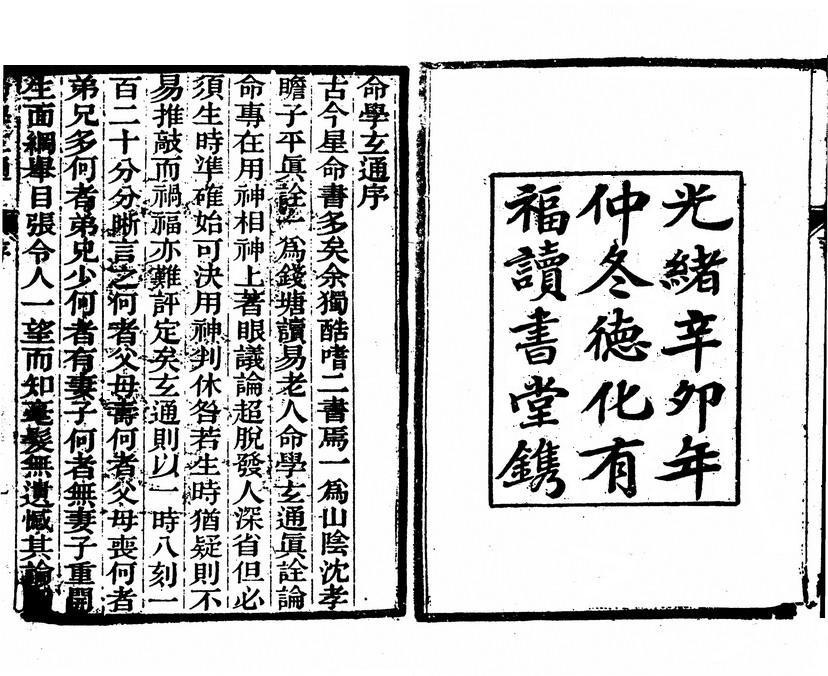 光緒辛卯年
仲冬德化有
福讀書堂鐫
命學玄通序
古今星命書多矣余獨酷嗜二書焉一為山陰沈孝
瞻子平眞詮一為錢塘讀易老人命學玄通眞詮論
命專在用神相神上著眼議論超脫發人深省但必
須生時準確始可決用神判休咎若生時猶疑則不
易推敲而禍福亦難評定矣玄通則以一時八刻一
百二十分分晰言之何者父母壽何者父母喪何者
弟兄多何者弟兄少何者有妻子何者無妻子重開
生面綱舉目張令人一望而知毫髮無遺憾其論